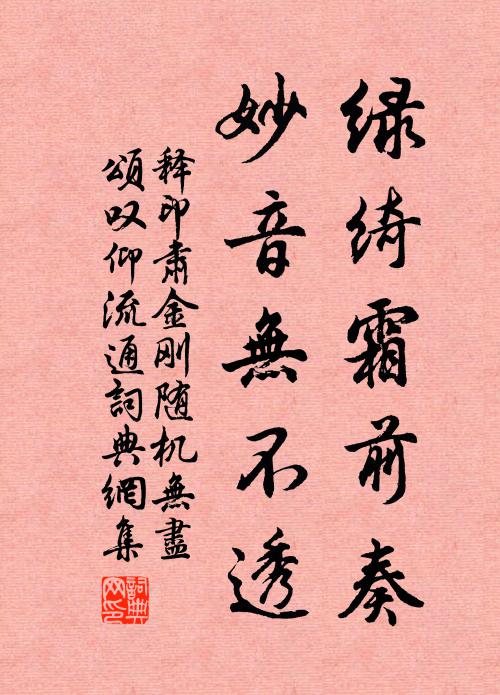 绿绮霜前奏
妙音無不透
释印肃金刚随机無盡
頌叹仰流通詞典網集
詞典網印